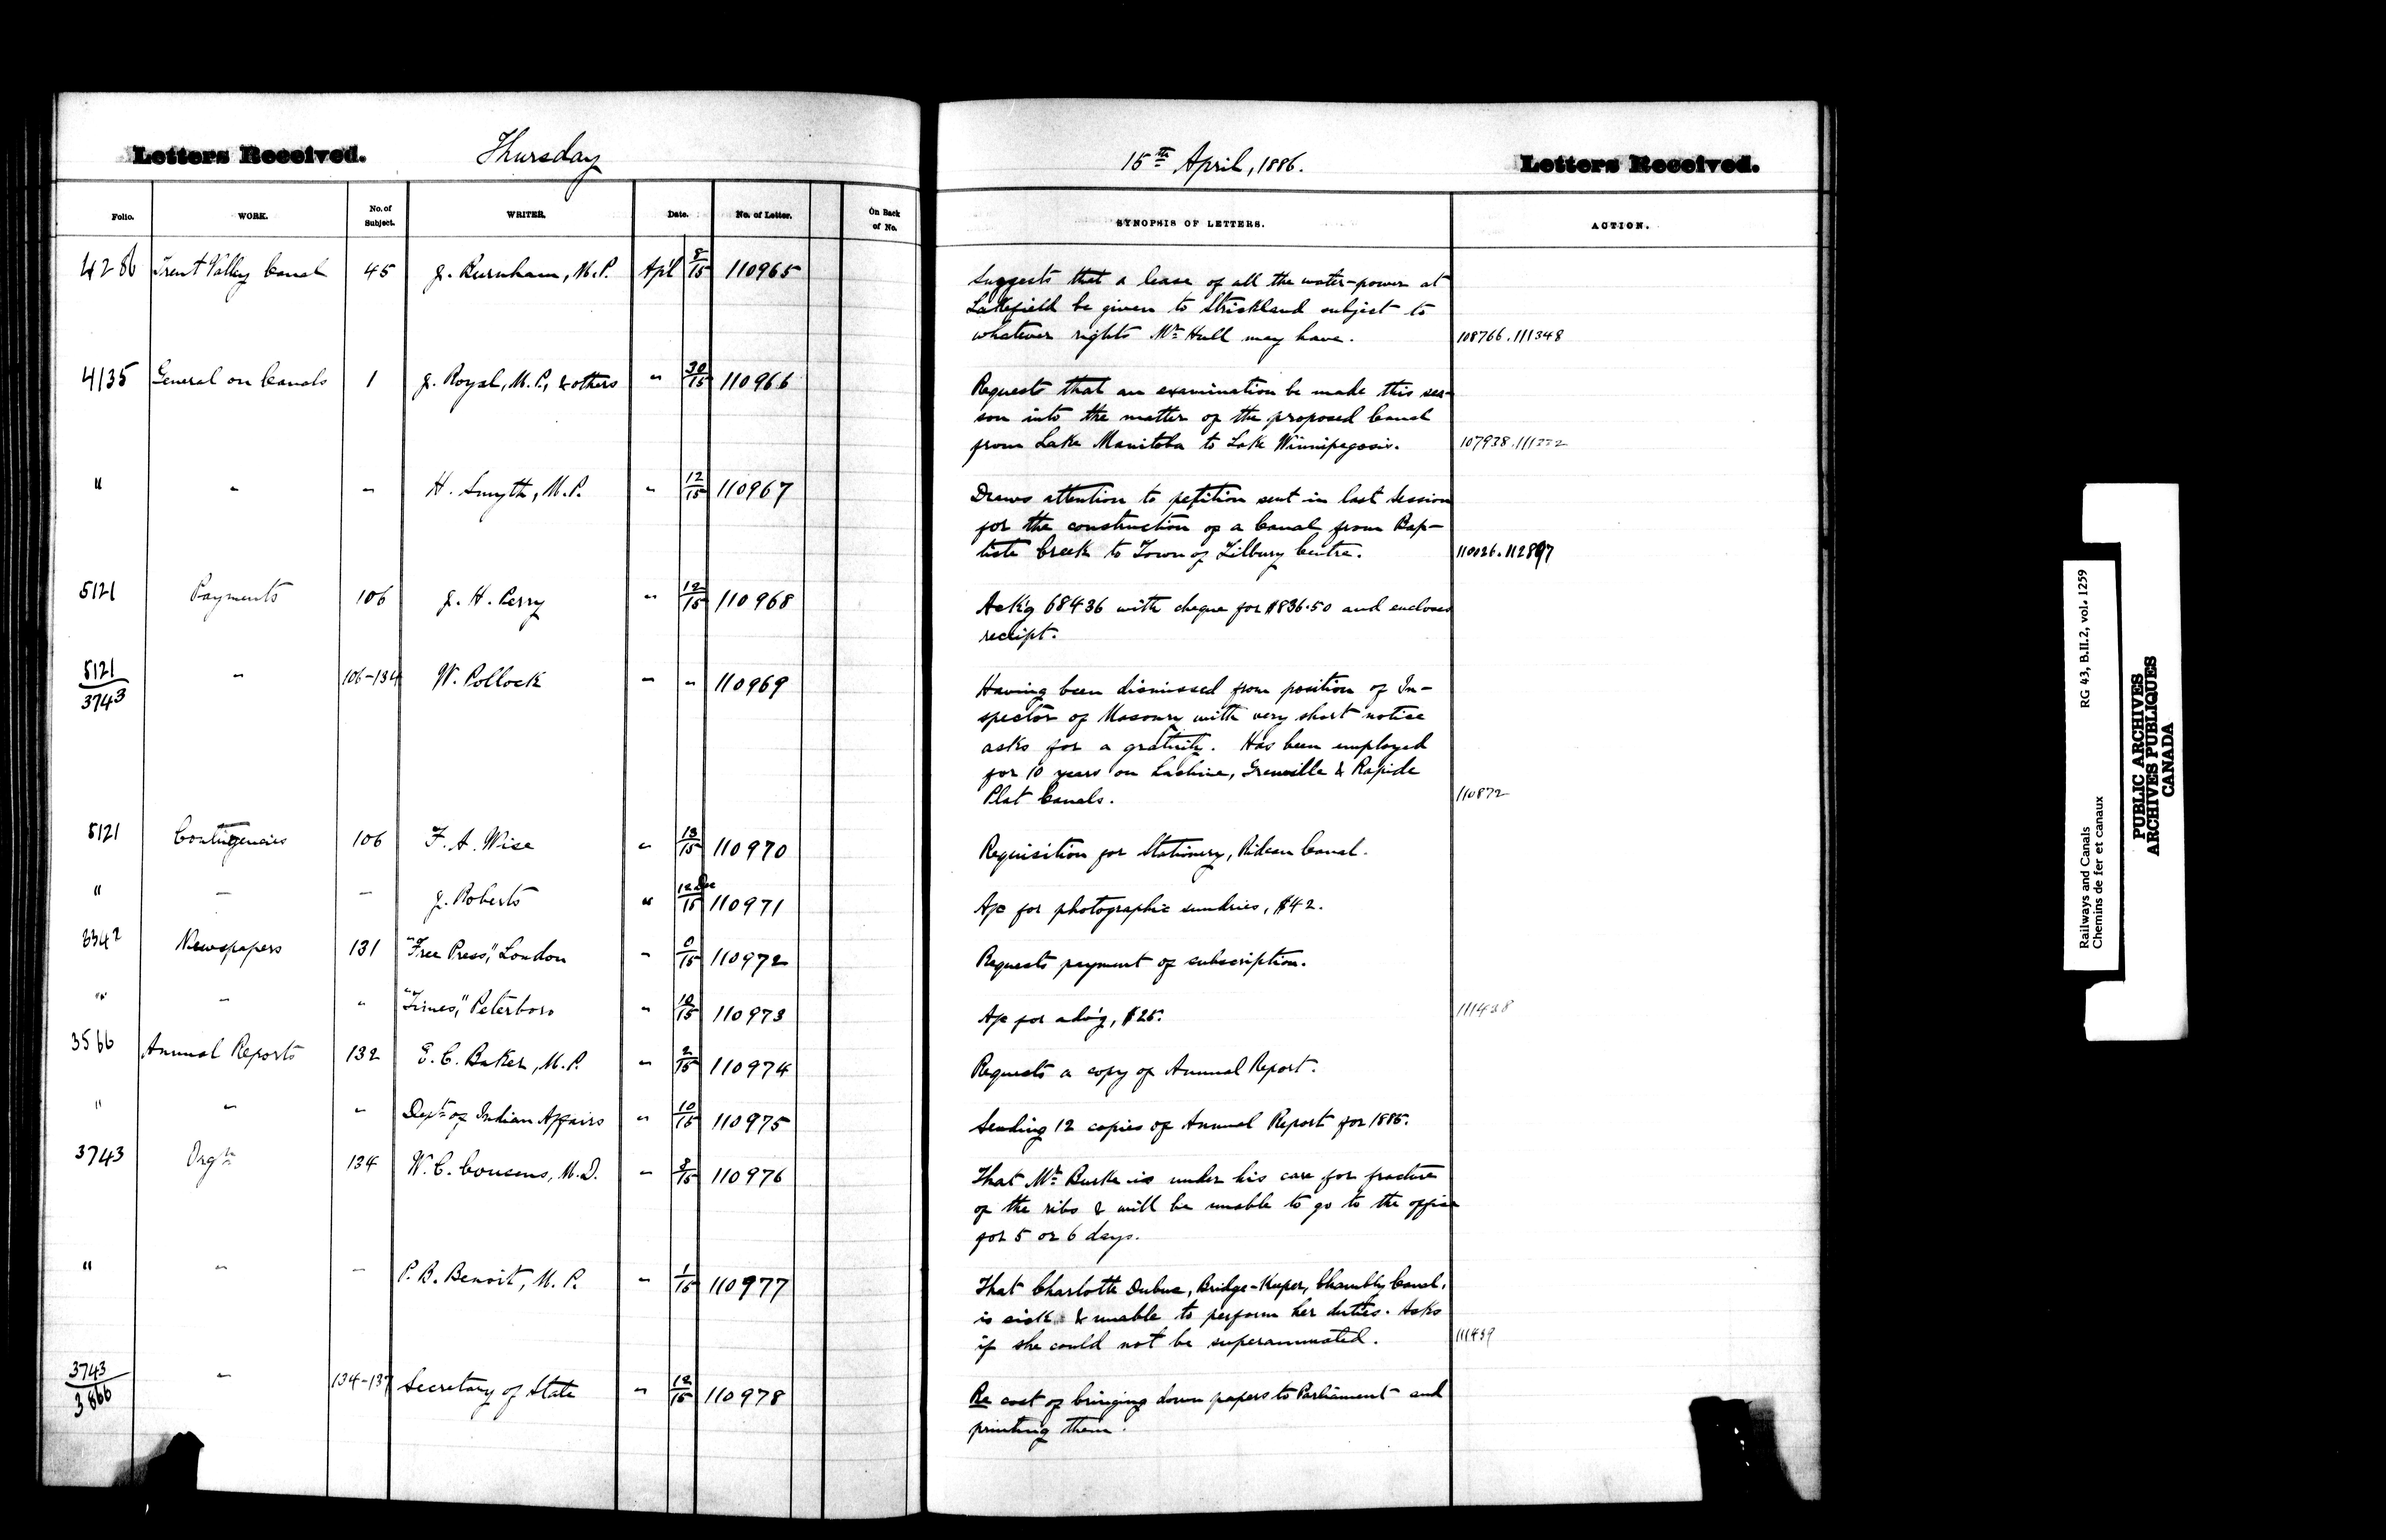 Letters Received. Thursday
15th April, 1886. Letters Received.
Folio. WORK. No. of Subject. WRITER. Date. No. of Letter. On Back of No. SYNOPSIS OF LETTERS. ACTION.
4286 Trent Valley Canal 45 J. Burnham, M.P. Ap'l 8/15 110965
Suggests that a lease of all the water-power at
Lakefield be given to Strickland subject to
whatever rights Mr Hull may have. 108766.111348
4135 General on Canals 1 J. Royal, M.P., & others " 30/15 110966
Requests that an examination be made this sea-
son into the matter of the proposed Canal
from Lake Manitoba to Lake Winnipegosis. 107938.
" " " H. Smyth, M.P. " 12/15 110967
Draws attention to petition sent in last session
for the construction of a Canal from Bap-
tiste Creek to Town of Tilbury Centre. 110026.112897
5121 Payments 106 J. H. Perry " 12/15 110968
Ack'g 68436 with cheque for $836.50 and encloses
receipt.
5121/3743 " 106-134 W. Pollock " " 110969
Having been dismissed from position of In-
spector of Masonry with very short notice
asks for a gratuity. Has been employed
for 10 years on Lachine, Grenville & Rapide
Plat Canals. 110872
5121 Contingencies 106 F. A. Wise " 13/15 110970
Requisition for Stationery, Rideau Canal.
" " " J. Roberts " 12 Dec/15 110971
A/c for photographic sundries, $42.
3342 Newspapers 131 "Free Press", London " 0/15 110972
Requests payment of subscription.
" " " "Times," Peterboro " 10/15 110973
A/c for adv'g, $25. 111428
3566 Annual Reports 132 E. C. Baker, M.P. " 2/15 110974
Requests a copy of Annual Report.
" " " Dept of Indian Affairs " 10/15 110975
Sending 12 copies of Annual Report for 1885.
3743 Orgn 134 W. C. Cousens, M.D. " 8/15 110976
That Mr Burke is under his care for fracture
of the ribs & will be unable to go to the office
for 5 or 6 days.
" " " P. B. Benoit, M.P. " 1/15 110977
That Charlotte Dubuc, Bridge-Keeper, Chambly Canal,
is sick & unable to perform her duties. Asks
if she could not be superannuated. 111439
3743/3866 " 134-137 Secretary of State " 12/15 110978
Re cost of bringing down papers to Parliament and
printing them.
Railways and Canals RG 43, B.II.2, vol. 1259
Chemins de fer et canaux
PUBLIC ARCHIVES
ARCHIVES PUBLIQUES
CANADA